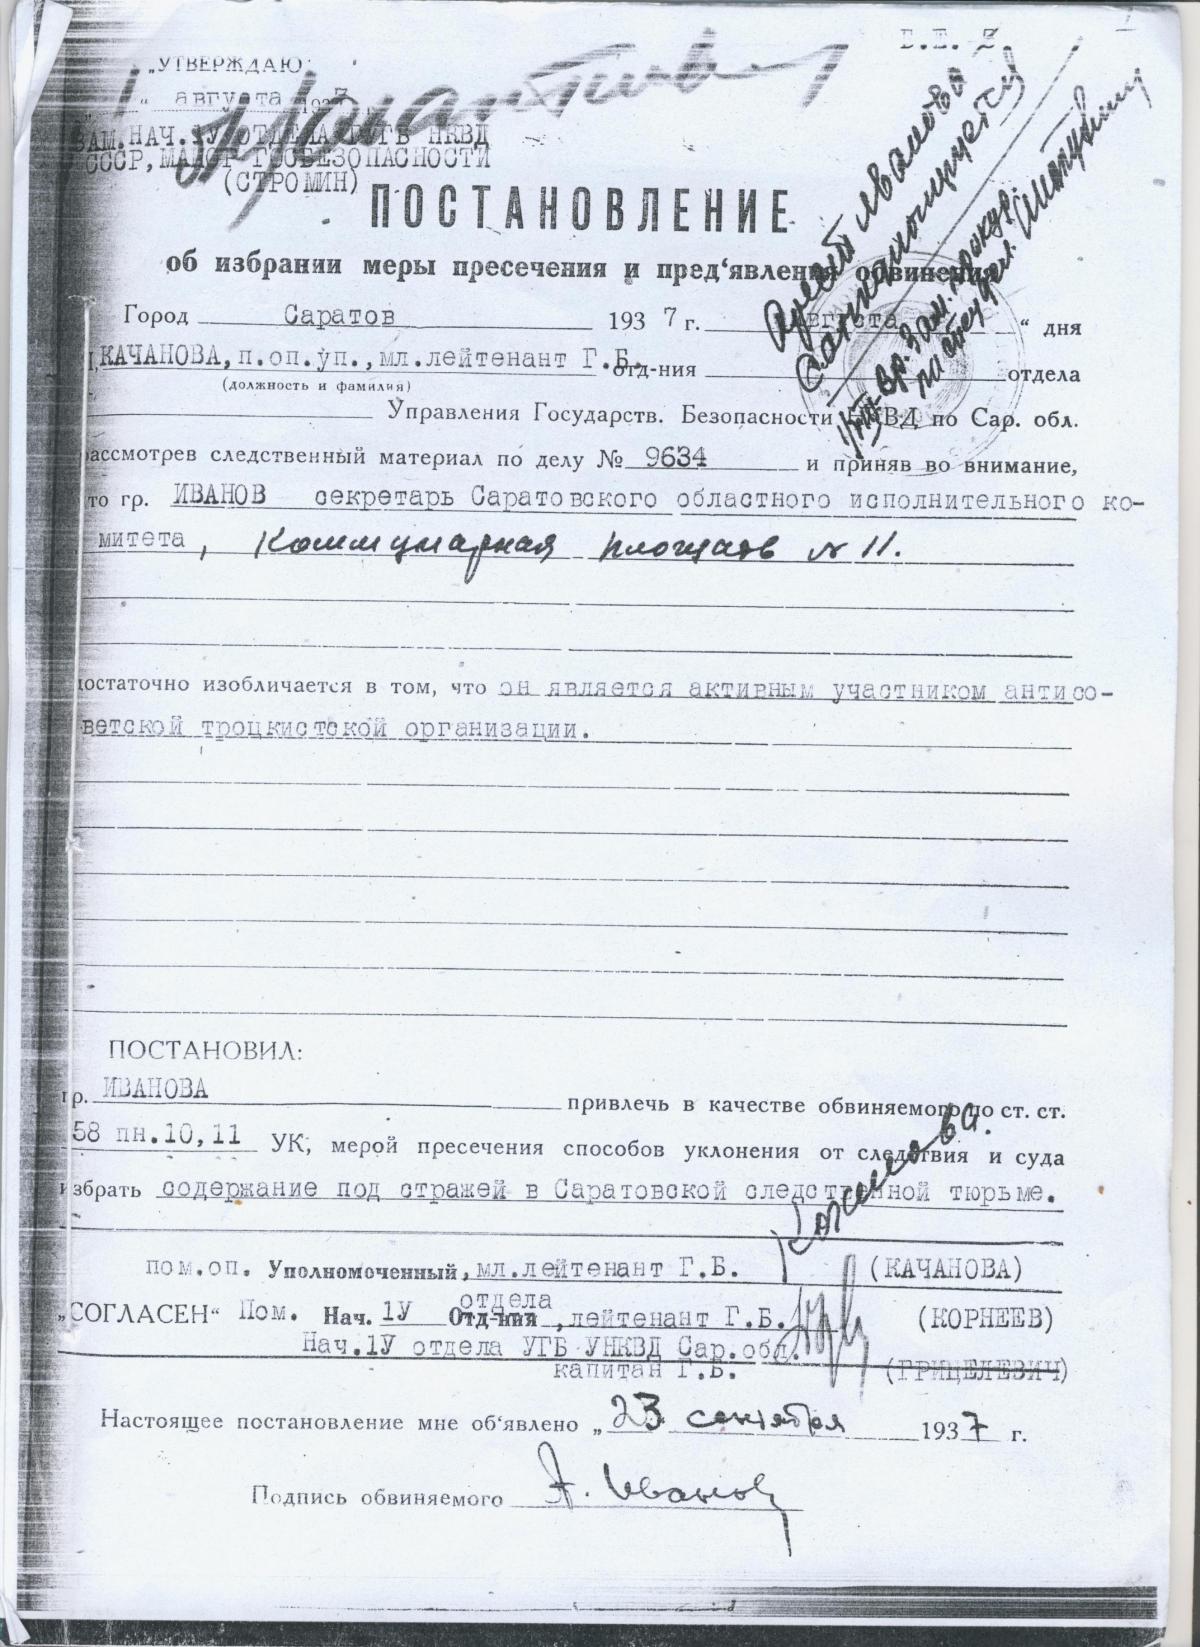 „УТВЕРЖДАЮ"
" августа 1937
ЗАМ. НАЧ. 1У ОТДЕЛА ГУГБ НКВД
СССР, МАЙОР ГОСБЕЗОПАСНОСТИ
(СТРОМИН)
ПОСТАНОВЛЕНИЕ
об избрании меры пресечения и пред‘явления обвинения
Арест Иванова
санкционируется
Вр. Зам. прокур.
по спецдел.
Город Саратов 1937 г. августа “ дня
КАЧАНОВА, п.оп.уп., мл.лейтенант Г.Б. отд-ния отдела
(должность и фамилия)
Управления Государств. Безопасности НКВД по Сар. обл.
рассмотрев следственный материал по делу № 9634 и приняв во внимание,
что гр. ИВАНОВ секретарь Саратовского областного исполнительного ко-
митета, Коммунарная площадь № 11.
достаточно изобличается в том, что он является активным участником антисо-
ветской троцкистской организации.
ПОСТАНОВИЛ:
гр. ИВАНОВА привлечь в качестве обвиняемого по ст. ст.
58 пн.10,11 УК, мерой пресечения способов уклонения от следствия и суда
избрать содержание под стражей в Саратовской следственной тюрьме.
пом.оп. Уполномоченный, мл.лейтенант Г.Б. (КАЧАНОВА)
отдела
„СОГЛАСЕН“ Пом. Нач. 1У Отд-ния, лейтенант Г.Б. (КОРНЕЕВ)
Нач.1У отдела УГБ УНКВД Сар.обл.
капитан Г.Б. (ГРИЦЕЛЕВИЧ)
Настоящее постановление мне об‘явлено „23 сентября 1937 г.
Подпись обвиняемого А. Иванов